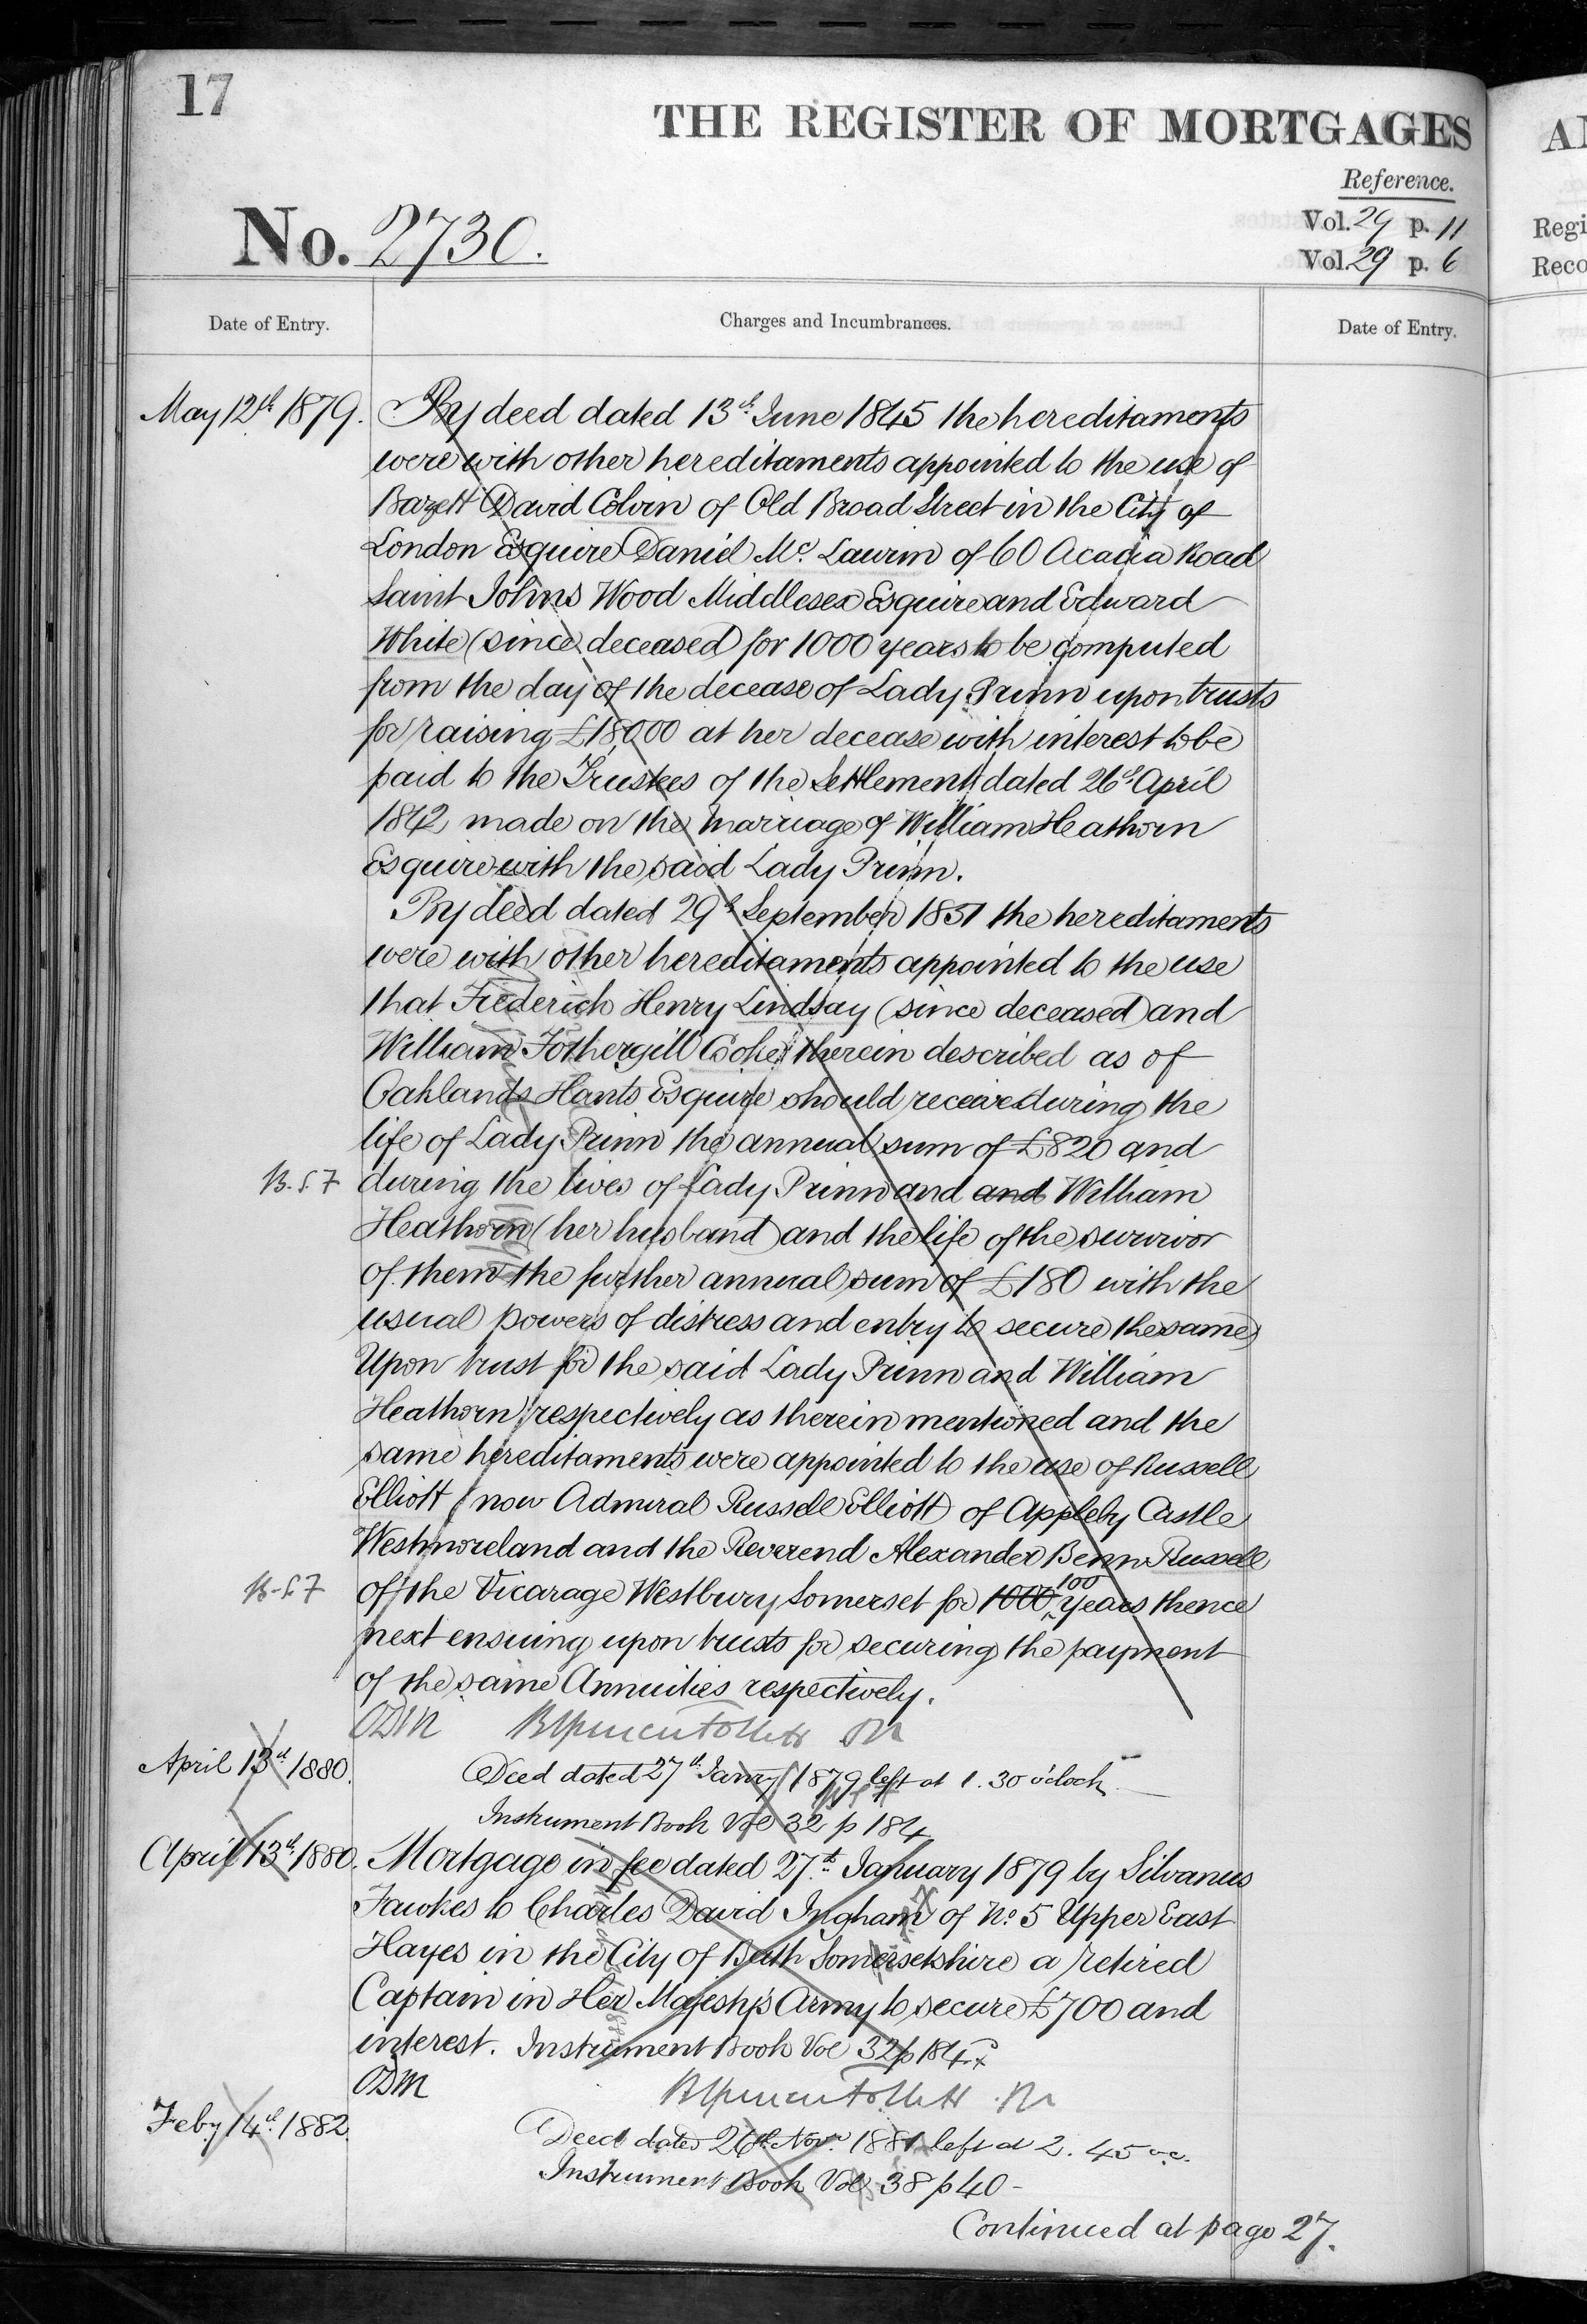 17
THE REGISTER OF MORTGAGES
Reference.
Vol. 29 p. 11
No. 2730.
Vol. 29 p. 6
Regi
Reco
Date of Entry.
Charges and Incumbrances.
Date of Entry.
May 12th 1879.
By deed dated 13th June 1845 the hereditaments
were with other hereditaments appointed to the use of
Bazett David Colvin of Old Broad Street in the City of
London Esquire Daniel Mc. Laurin of 60 Acacia Road
Saint Johns Wood Middlesex Esquire and Edward
White (since deceased) for 1000 years to be computed
from the day of the decease of Lady Prinn upon trusts
for raising £18000 at her decease with interest to be
paid to the Trustees of the Settlement dated 26th April
1842 made on the marriage of William Heathorn
Esquire with the said Lady Prinn.
By deed dated 29th September 1851 the hereditaments
were with other hereditaments appointed to the use
that Frederick Henry Lindsay (since deceased) and
William Fothergill Cooke therein described as of
Oaklands Hants Esquire should receive during the
life of Lady Prinn the annual sum of £820 and
during the lives of Lady Prinn and and William
Heathorn (her husband) and the life of the survivor
of them the further annual sum of £180 with the
usual powers of distress and entry to secure the same
Upon trust for the said Lady Prinn and William
Heathorn respectively as therein mentioned and the
same hereditaments were appointed to the use of Russell
Elliott (now Admiral Russell Elliott) of Appleby Castle
Westmoreland and the Reverend Alexander Benn Russell
of the Vicarage Westbury Somerset for 1000 100 years thence
next ensuing upon trusts for securing the payment
of the same Annuities respectively.
April 13th 1880.
Deed dated 27th Jany 1879 left at 1.30 o'clock
Instrument Book Vol 32 p 184
April 13th 1880.
Mortgage in fee dated 27th January 1879 by Silvanus
Fawkes to Charles David Ingham of No. 5 Upper East
Hayes in the City of Bath Somersetshire a retired
Captain in Her Majesty's Army to secure £700 and
interest. Instrument Book Vol 32 p 184
Feby 14th 1882.
Deed dated 26th Novr. 1881 left at 2.45 o.c.
Instrument Book Vol 38 p 40 -
Continued at page 27.